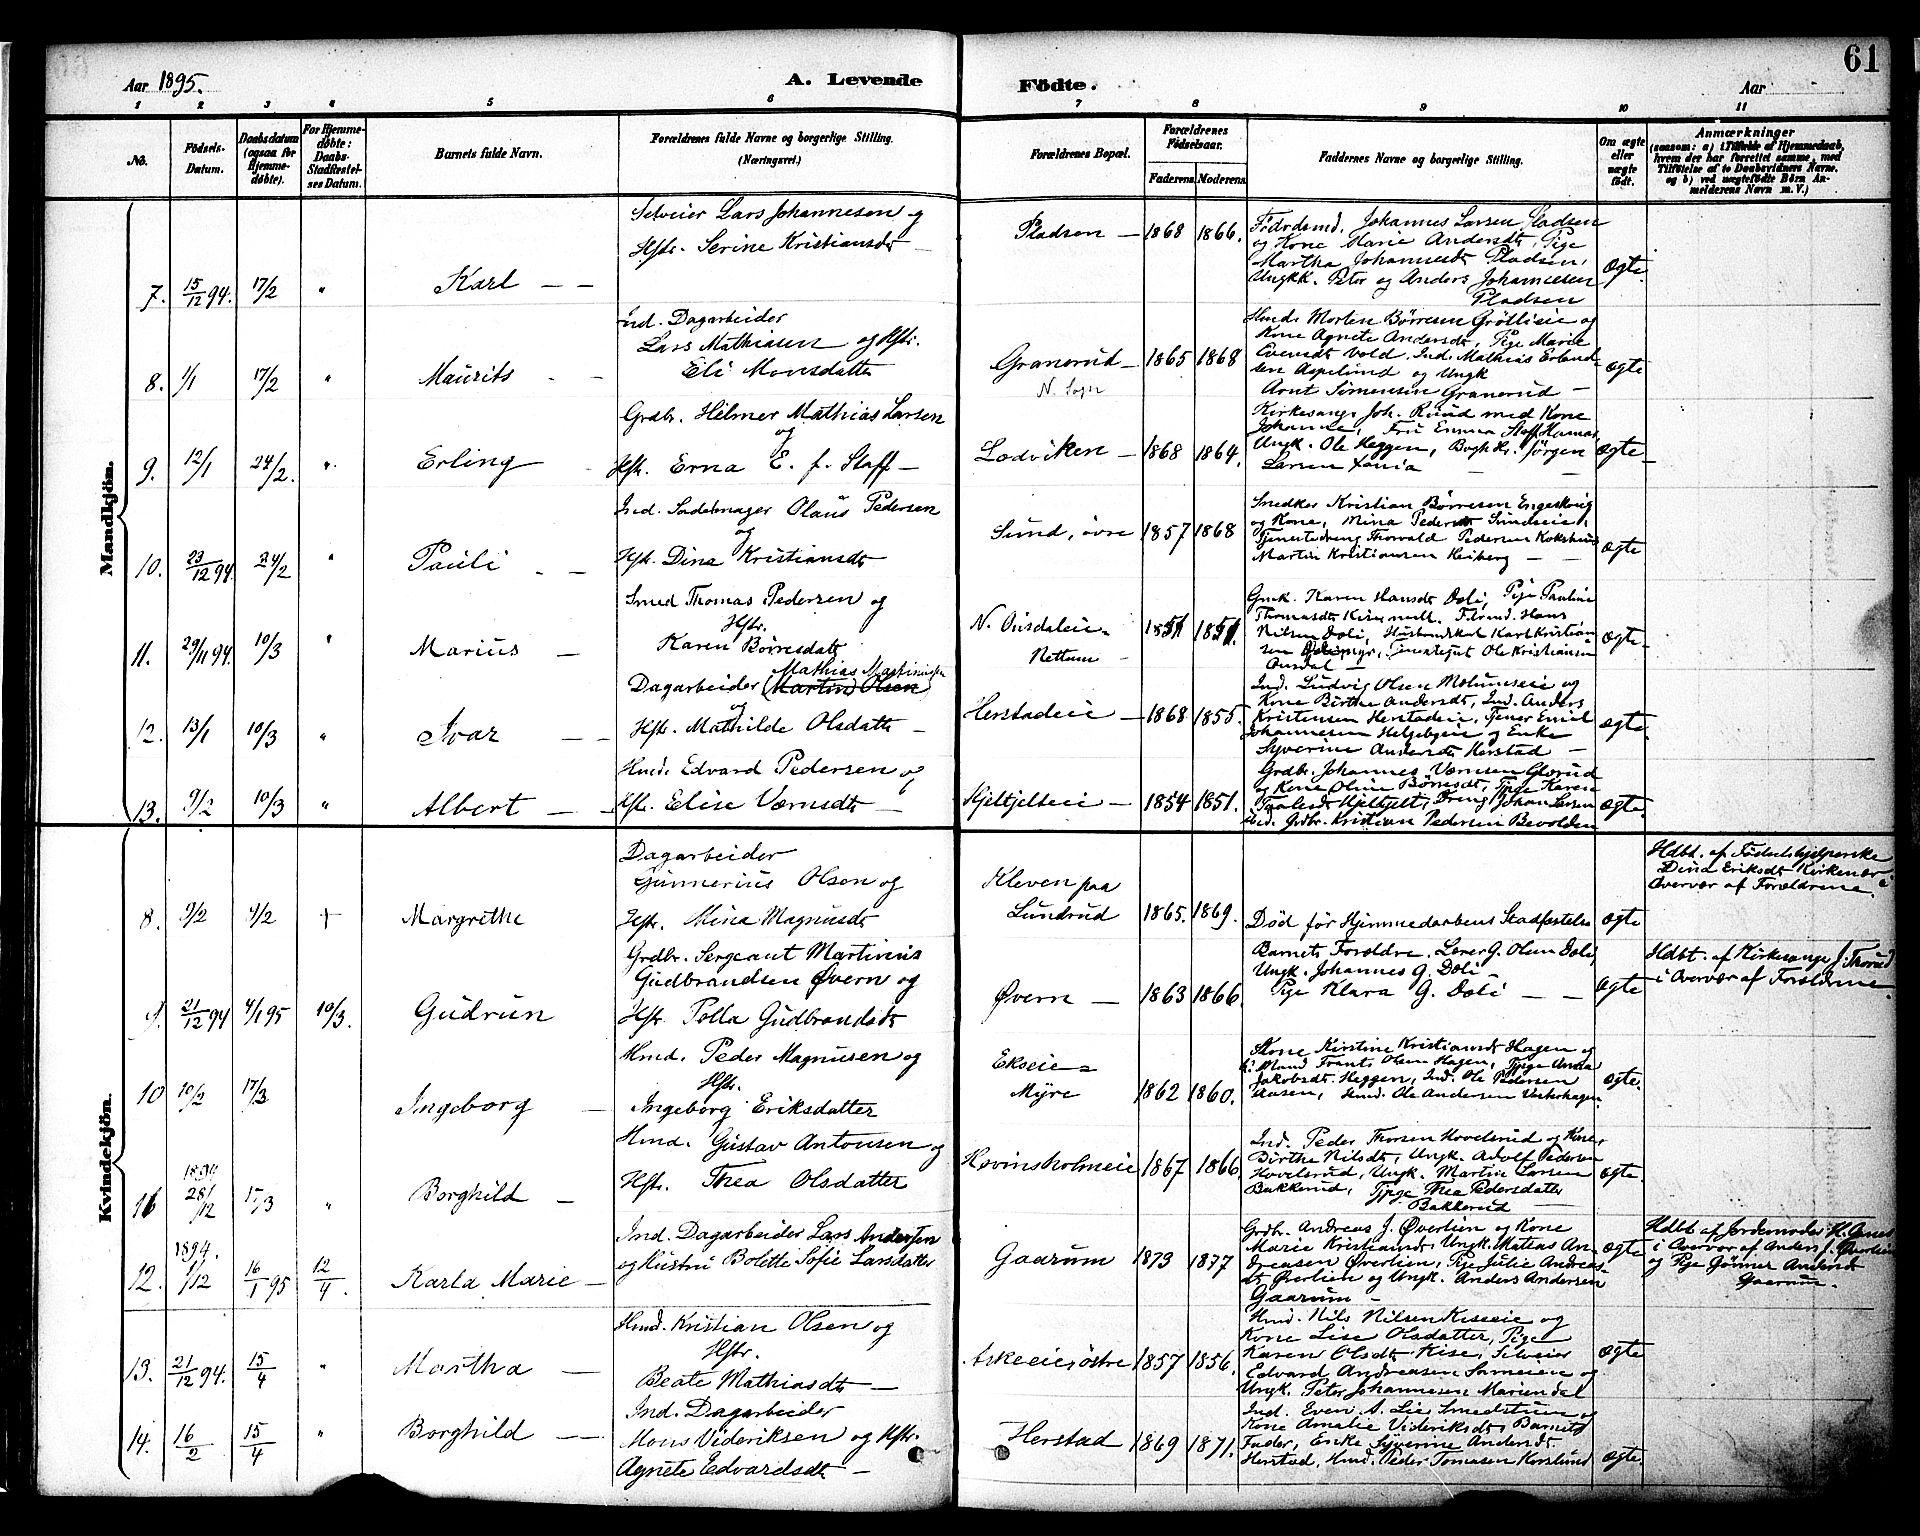 61
Aar 1895.
A. Levende
Födte.
Aar
1 2 3 4 5 6 7 8 9 10 11
No.
Födsels-
Datum.
Daabsdatum
(ogsaa for
Hjemme-
döbte).
For Hjemme-
döbte:
Daabs-
Stadfæstel-
ses Datum.
Barnets fulde Navn.
Forældrenes fulde Navne og borgerlige Stilling.
(Næringsvei.)
Forældrenes Bopæl.
Forældrenes
Födselsaar.
Faderens. Moderens.
Faddernes Navne og borgerlige Stilling.
Om ægte
eller
uægte
födt.
Anmærkninger
(saasom: a) i Tilfælde af Hjemmedaab,
hvem der har forrettet samme, med
Tilföielse af to Daabsvidners Navne,
og b) ved uægtefödte Börn An-
melderens Navn m. V.)
Mandkjön.
7. 15/12 94. 17/2 " Karl
Selveier Lars Johannesen og
Hstr. Serine Kristiansdt
Pladsen 1868 1866.
Johannes Larsen Pladsen
og Kone Marie Andersdt, Pige
Martha Johannesdt Pladsen,
Ungkk. Peter og Anders Johannesen
Pladsen
ægte
8. 1/1 17/2 " Maurits
Ind. Dagarbeider
Lars Mathiasen og Hstr.
Eli Monsdatter
Granerud
N. Sogn
1865 1868
Hmd. Morten Börresen Gröttlieie og
Kone Agnete Andersdt, Pige Marie
Evensdt Vold, Ind. Mathias Erland-
sen Aspelund og Ungk
Arnt Simensen Granerud
ægte
9. 12/1 24/2. " Erling
Grdbr. Hilmer Mathias Larsen
og
Hstr. Erna E. f. Staff
Lodviken 1868 1864.
Kirkesang. Joh. Ruud med Kone
Johanne, Fru Emma Staff Hamar,
Ungk. Ole Heggen, Boghk. Jörgen
Larsen
ægte
10. 23/12 94. 24/2 " Pauli
Ind. Sadelmager Olaus Pedersen
og
Hstr. Dina Kristiansdt
Sund, övre 1857 1868
Snedker Kristian Börresen Engeskvig
og Kone, Mina Pedersdt Sundseie,
Tjenestedreng Thorvald Pedersen
Martin Kristiansen Heiberg
ægte
11. 29/11 94. 10/3 " Marius
Smed Thomas Pedersen og
Hstr.
Karen Börresdatt
N. Onsdaleie
Nettum
1851 1851.
Gmk. Karen Hansdt Doli, Pige Pauline
Thomasdt
Nilsen Doli, Karl Kristian-
sen Ole Kristiansen
Onsdal
ægte
12. 13/1 10/3 " Ivar
Mathias Martinius
Dagarbeider (Martin) Olsen
og
Hstr. Mathilde Olsdatter
Herstadeie 1868 1855.
Ind. Ludvig Olsen Molunseie og
Kone Birthe Andersdt, Ind. Anders
Kristensen Herstadeie, Tjener Emil
Johannesen Helgebyeie og Enke
Syverine Andersdt Herstad
ægte
13. 9/2 10/3 " Albert
Hmd. Edvard Pedersen og
Hstr. Elise Værnsdt
Hjeltjelseie 1854 1851.
Grdbr. Johannes Værnsen Glorud
og Kone Oline Börresdt, Pige Karen
Hjeltjelt, Dreng Johan Larsen
ibid. Grdbr. Kristian Pedersen Bevolden
ægte
Kvindekjön.
8. 9/2 9/2 + Margrethe
Dagarbeider
Gunnerius Olsen og
Hstr. Mina Magnusdt
Kleven paa
Lundrud
1865. 1869.
Död för Hjemmedaabens Stadfæstelse
ægte
Hdbt. af Födselshjælperske
Dina Eriksdt Kirkenær i
Overvær af Forældrene
9. 21/12 94 4/1 95 10/3. Gudrun
Grdbr. Sergeant Martinius
Gudbrandsen Övern og
Hstr. Polla Gudbrandsdt
Övern 1863 1866.
Barnets Forældre, Lærer G. Olsen Doli,
Ungk. Johannes G. Doli
Pige Klara G. Doli
ægte
Hdbt. af Kirkesanger J. Thorud
i Overvær af Forældrene.
10 10/2 17/3 Ingeborg
Hmd. Peder Magnusen og
Hstr.
Ingeborg Eriksdatter
Ekseie
Myre
1862 1860.
Kone Kirstine Kristiansdt Hagen og
Mand Frants Olsen Hagen, Pige Anna
Jakobsdt. Heggen, Ind. Ole Pedersen
Aasen, Hmd. Ole Andersen Vesterhagen
ægte.
11 1894 28/12 17/3 " Borghild
Hmd. Gustav Antonsen og
Hstr. Thea Olsdatter
Hovinsholmeie 1867 1866
Ind. Peder Thorsen Hovelsrud og Kone
Birthe Nilsdt, Ungk. Adolf Pedersen
Hovelsrud, Ungk. Martin Larsen
Bakkerud, Pige Thea Pedersdatter
Bakkerud
ægte.
12. 1894. 1/12 16/1 95 12/4. Karla Marie
Ind. Dagarbeider Lars Andersen
og Hustru Bolette Sofie Larsdatter
Gaarum 1873 1877
Grdbr. Andreas J. Övertien og Kone
Marie Kristiansdt, Ungk. Matias An-
dreasen Övertien, Pige Julie Andreas-
dt Övertien og Ungk. Anders Andersen
Gaarum
ægte
Hdbt af Jordemoder H.
i Overvær af Anders J. Övertien
og Pige Gunner Andersdt
Gaarum
13. 21/12 94. 15/4 " Martha
Hmd. Kristian Olsen og
Hstr.
Beate Mathiasdt
Askeeie, östre 1857 1856.
Hmd. Nils Nilsen Kiseeie og
Kone Lise Olsdatter, Pige
Karen Olsdt Kise, Selveier
Edvard Andreasen Sameien og
Ungk. Peter Johannesen Mariendal
ægte
14. 16/2 15/4 " Borghild
Ind. Dagarbeider
Mons Videriksen og Hstr.
Agnete Edvardsdt
Herstad 1869 1871.
Ind. Even A. Lie, Smedstuen og
Kone Amalie Videriksdt, Barnets
Fader, Enke Syverine Andersdt
Herstad, Hmd. Peder Tomasen Korslund
ægte.